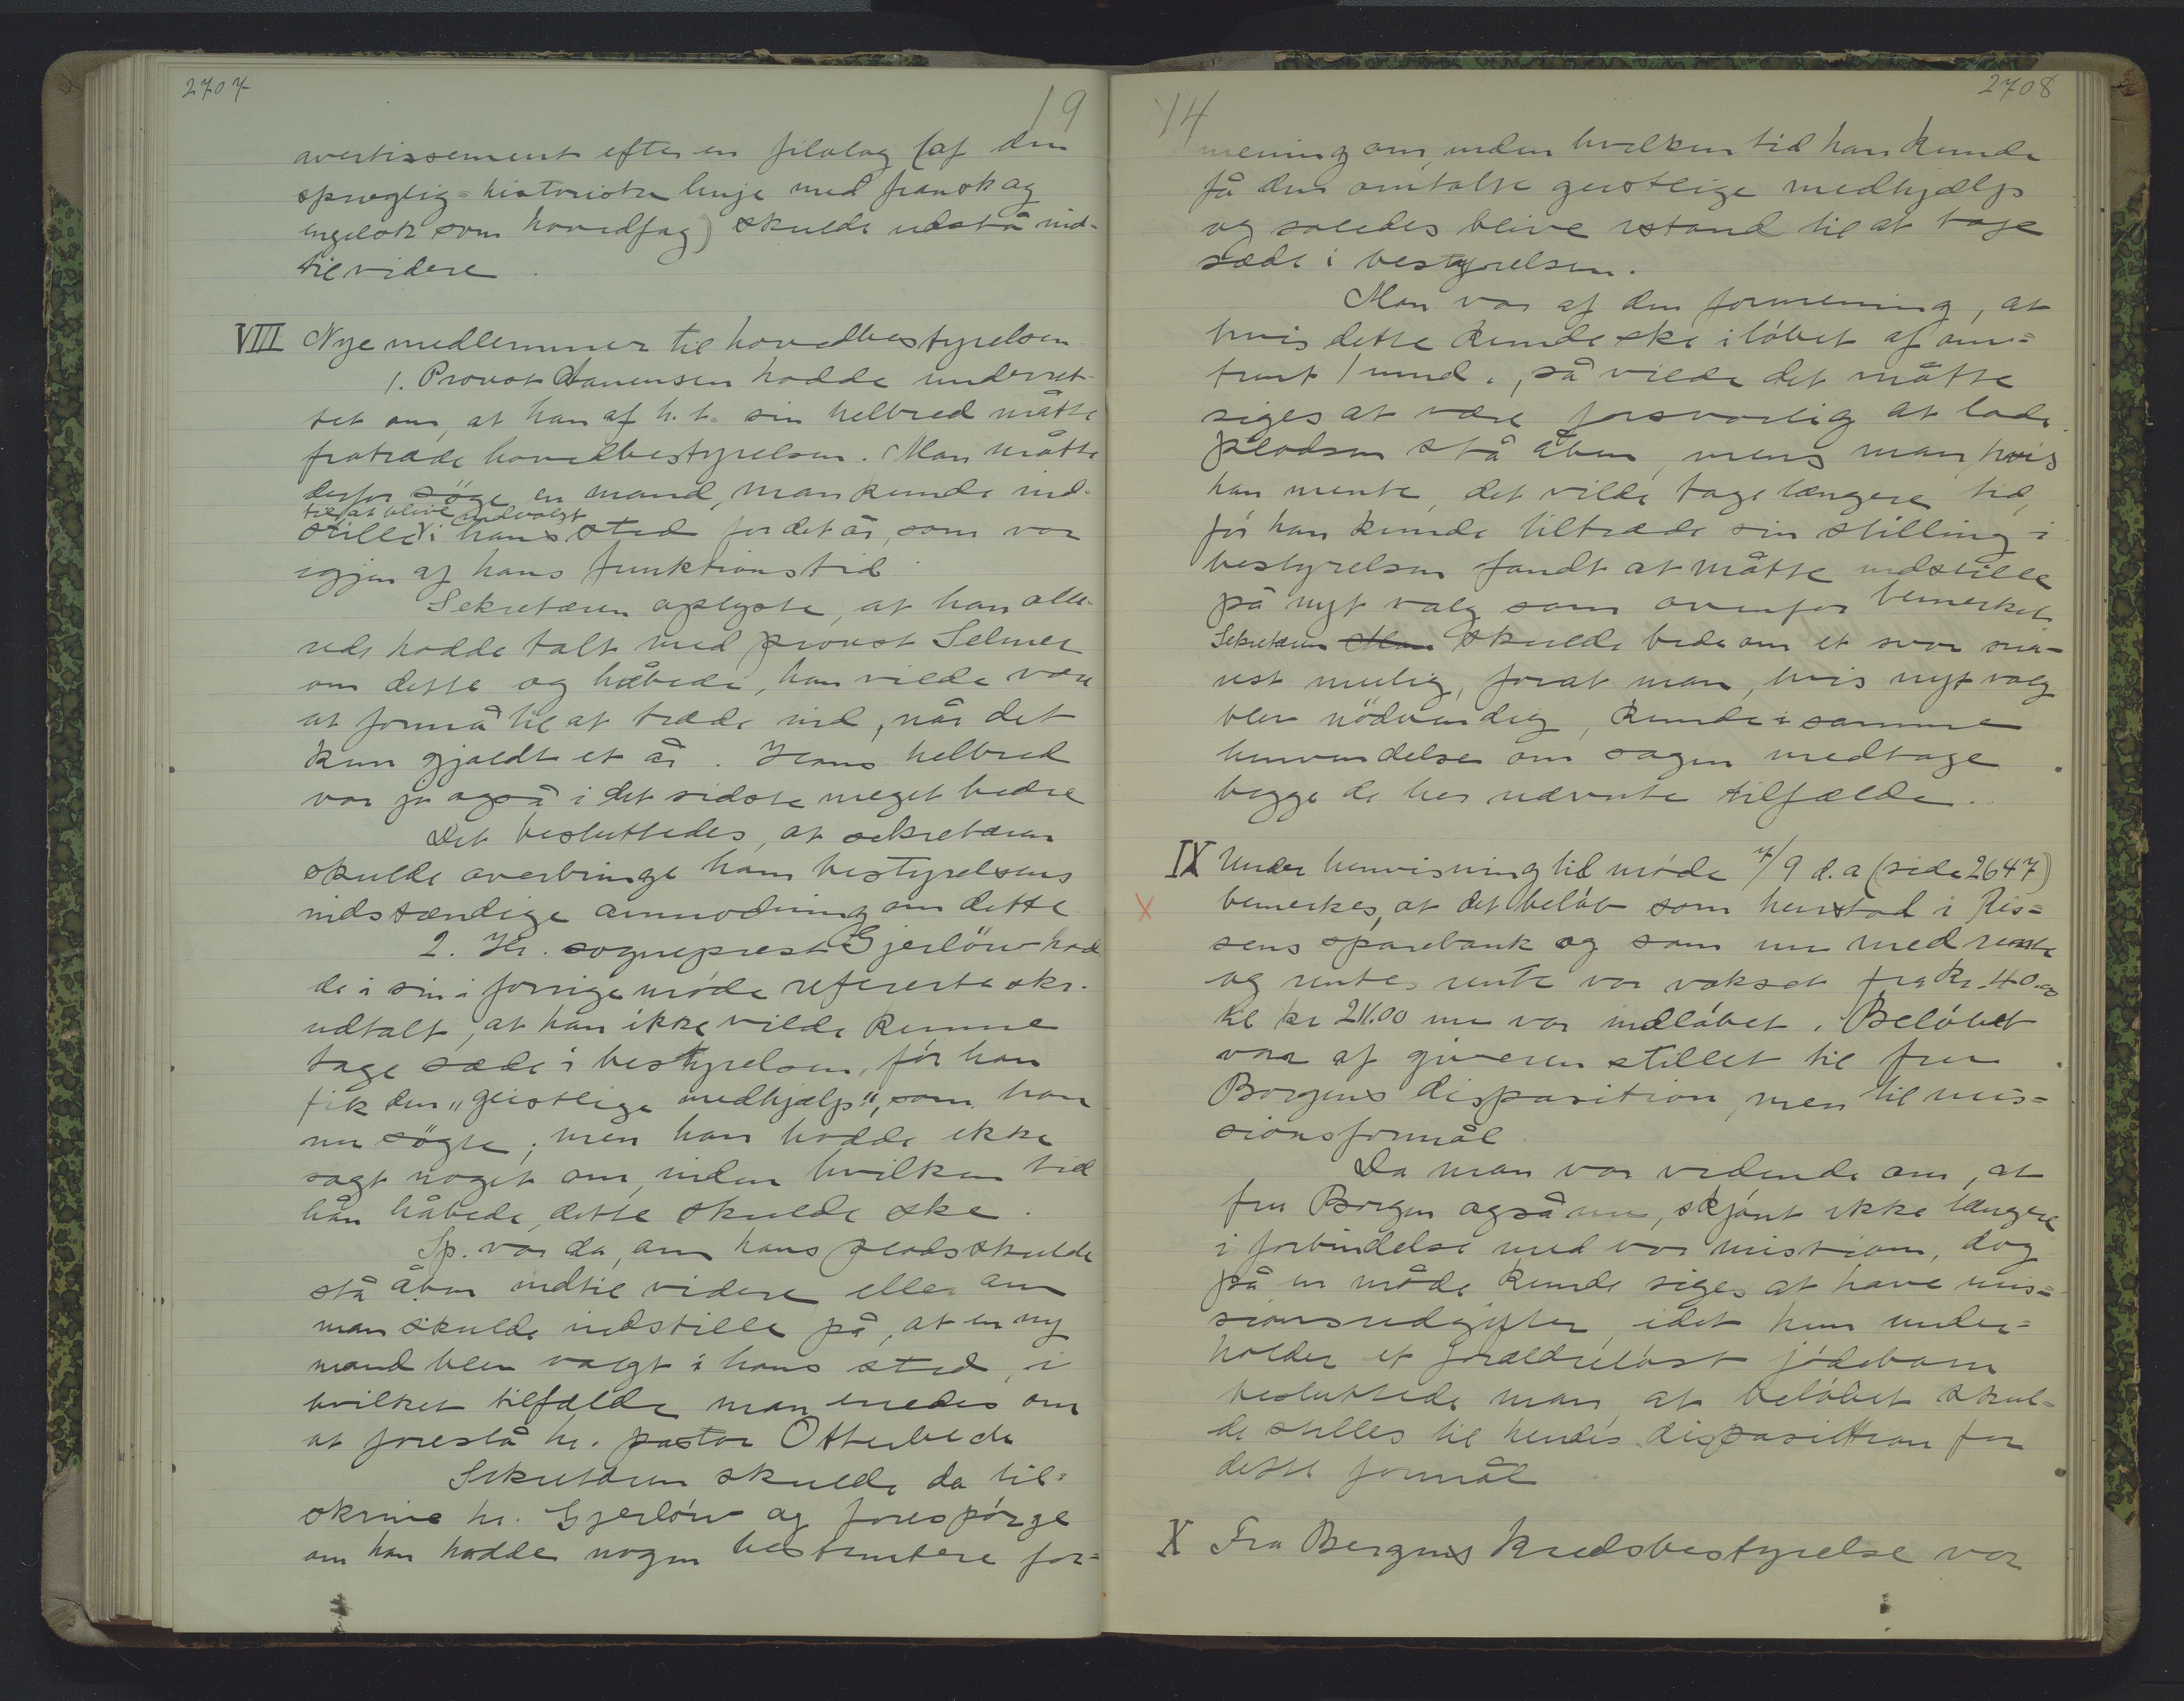 2707
19
avertissement efter en filolog (af den
sproglig=historiske linje med fransk og
engelsk som hovedfag) skulde udstå ind-
til videre.
VIII Nye medlemmer til hovedbestyrelsen
1. Provst hadde underret-
tet om, at han af h. t. sin helbred måtte
fratræde hovedbestyrelsen. Man måtte
derfor söge en mand, man kunde ind-
til at blive indvalgt
stille i hans sted for det år, som var
igjen af hans funktionstid.
Sekretæren oplyste, at han alle-
rede hadde talt med provst Selmer
om dette og håbede, han vilde være
at formå til at træde ind, når det
kun gjaldt et år. Hans helbred
var jo også i det sidste meget bedre
Det besluttedes, at sekretæren
skulde overbringe ham bestyrelsens
indstændige anmodning om dette.
2. Hr. sogneprest Gjerlöw had
de i sin i forrige möde refererte skr.
udtalt, at han ikke vilde kunne
tage sæde i bestyrelsen, för han
fik den "geistlige medhjælp", som han
nu sögte; men han hadde ikke
sagt noget om, inden hvilken tid
han håbede, dette skulde ske.
Sp. var da, om hans plads skulde
stå åben indtil videre eller om
man skulde indstille på, at en ny
mand blev valgt i hans sted, i
hvilket tilfælde man enedes om
at foreslå hr. pastor Otterbech
Sekretæren skulde da til-
skrive hr. Gjerlöw og forespörge
om han hadde nogen bestemtere for=
14
2708
mening om, inden hvilken tid han kunde
få den omtalte geistlige medhjælp
og således blive istand til at tage
sæde i bestyrelsen.
Man var af den formening, at
hvis dette kunde ske i löbet af om=
trent 1 mnd., så vilde det måtte
siges at være forsvarlig at lade
pladsen stå åben, mens man, hvis
han mente, det vilde tage længere tid,
för han kunde tiltræde sin stilling i
bestyrelsen fandt at måtte indstille
på nyt valg som ovenfor bemerket
Sekretæren Man skulde bede om et svar sna-
rest mulig, forat man, hvis nyt valg
blev nödvendig, kunde i samme
henvendelse om sagen medtage
begge de her nævnte tilfælde.
IX Under henvisning til möde 4/9 d.a (side 2647)
X bemerkes, at det belöb som henstod i Ris=
sens sparebank og som nu med rente
og rentes rente var vokset fra kr. 40.00
til kr 211.00 nu var indlöbet. Belöbet
var af giveren stillet til fru
Borgens disposition, men til mis=
sionsformål.
Da man var vidende om, at
fru Borgen også nu, skjönt ikke længere
i forbindelse med vor mission, dog
på en måde kunde siges at have mis=
sionsudgifter, idet hun under=
holder et forældrelöst jödebarn
besluttede man, at belöbet skul=
de stilles til hendes disposition for
dette formål.
X Fra Bergens kredsbestyrelse var